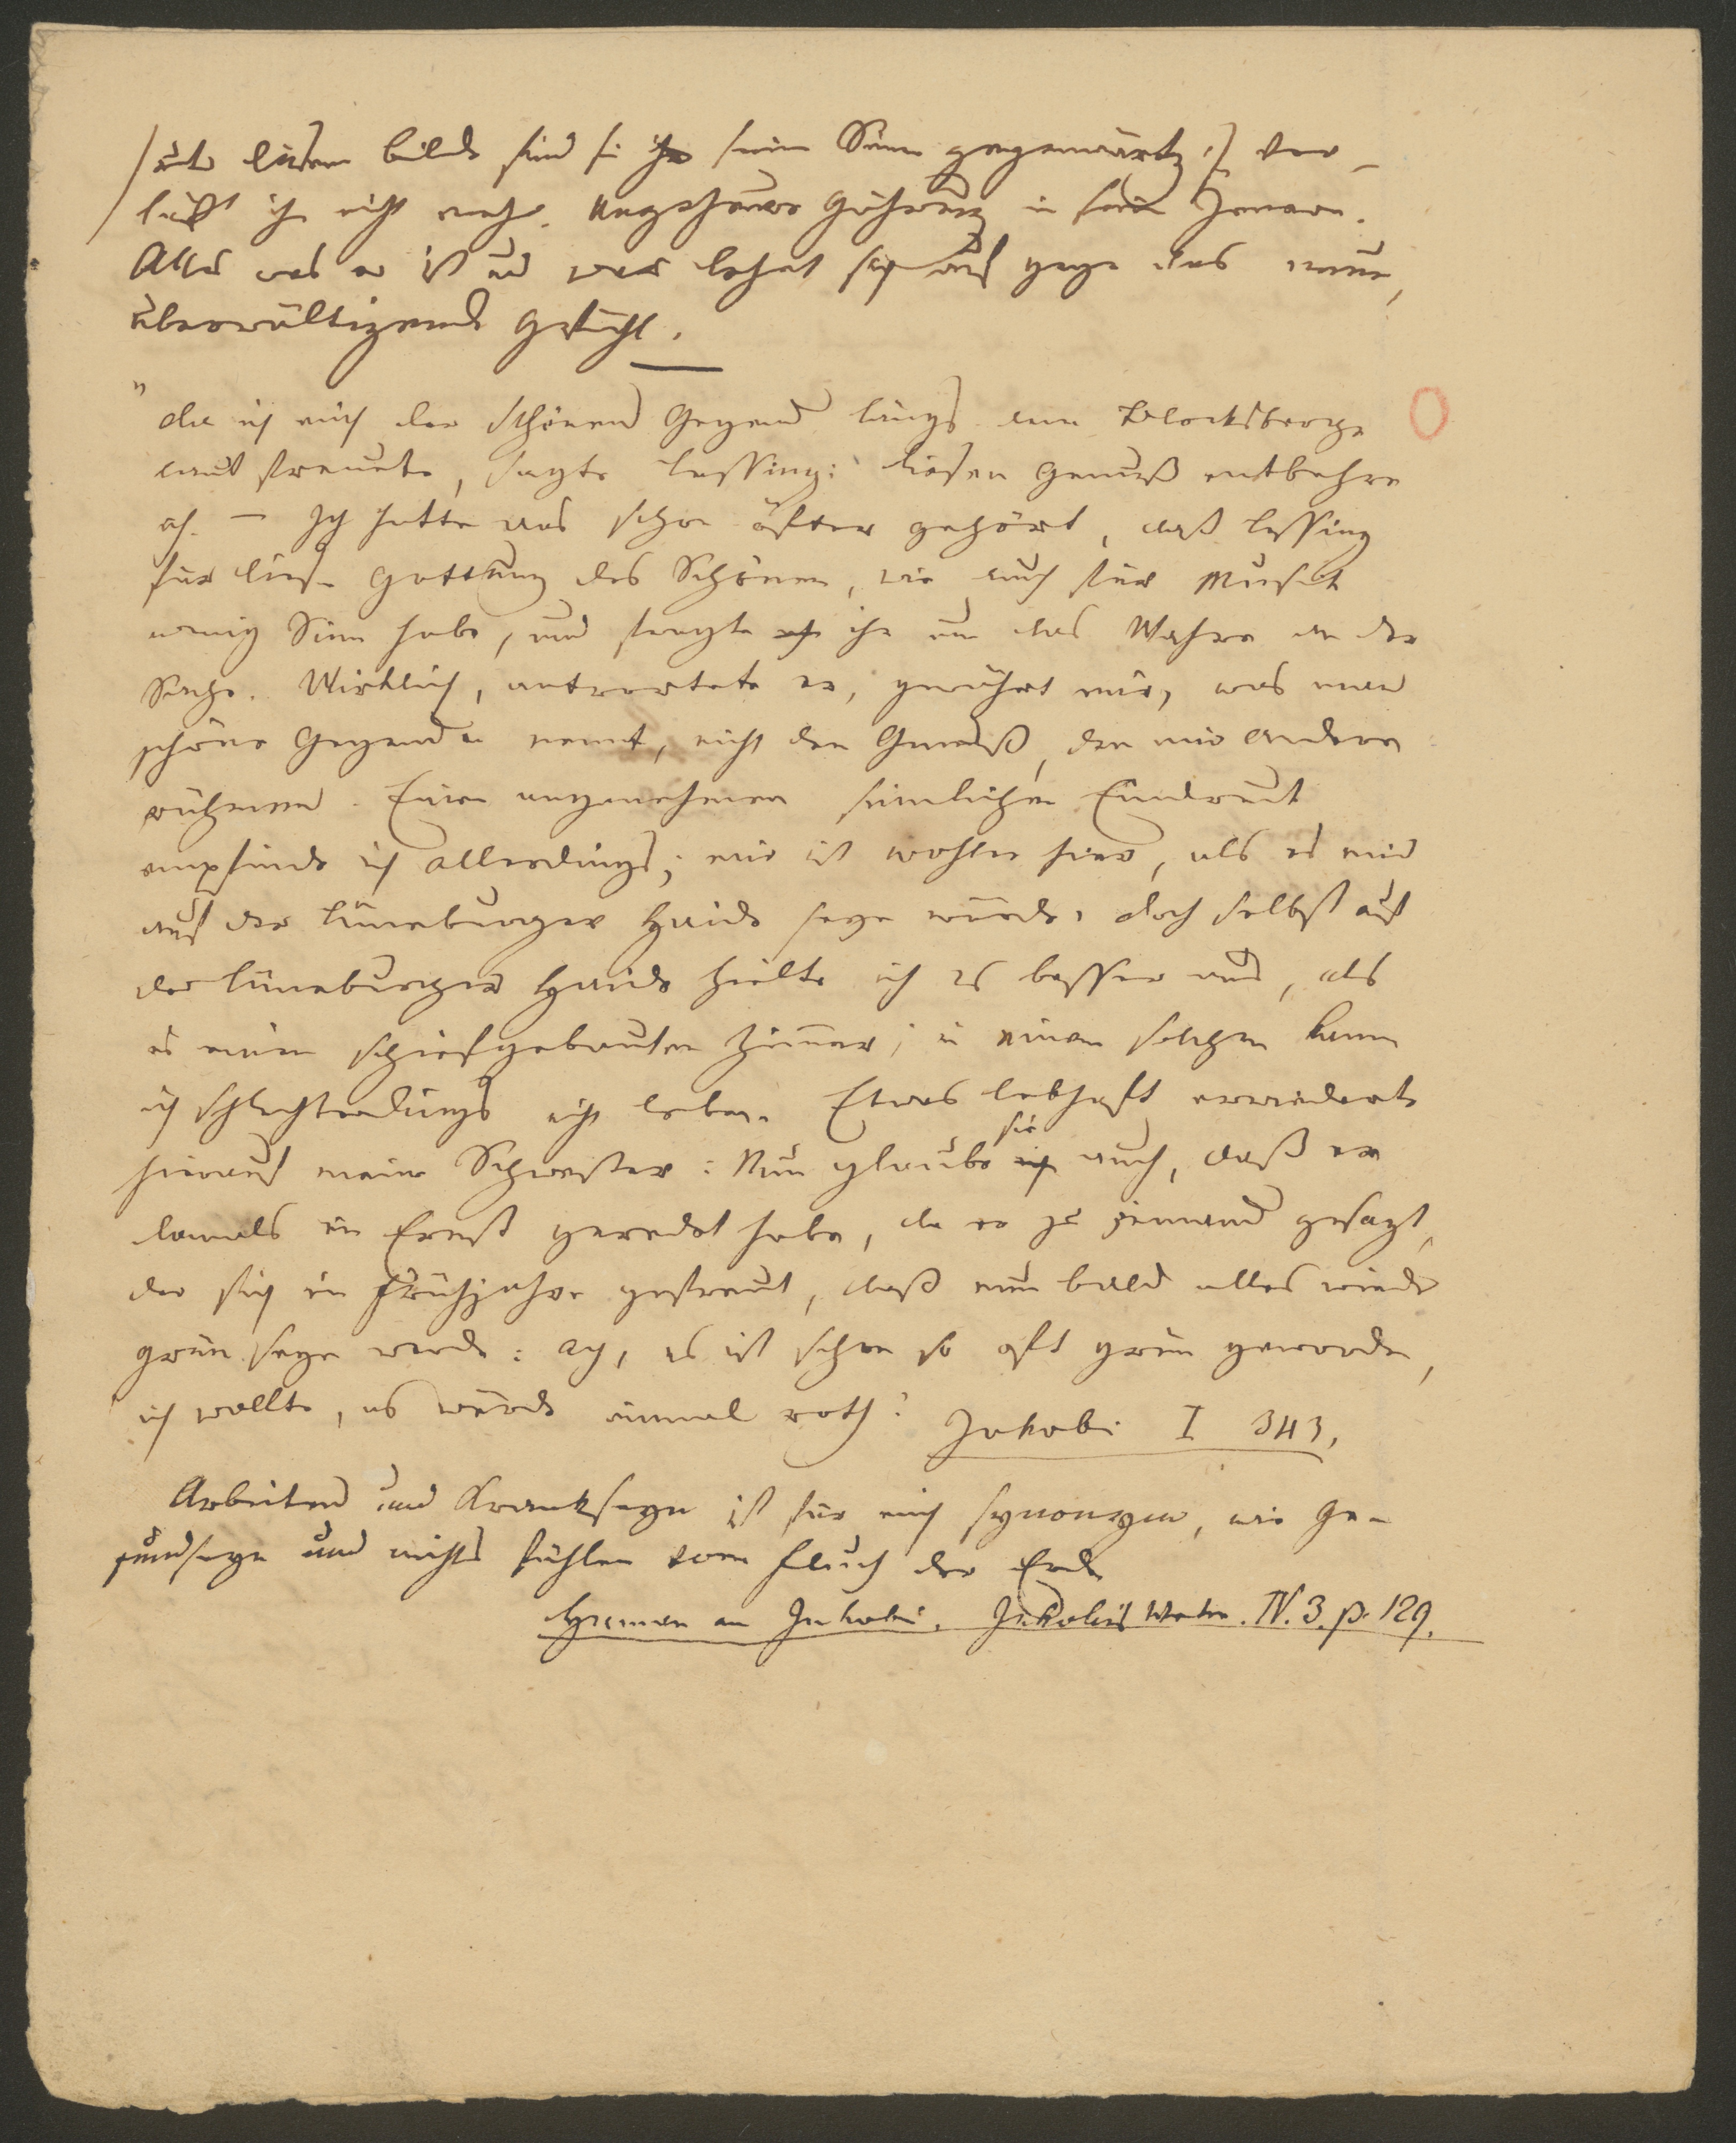 (unter diesem Bilde sind sie ihr seinem Sinn gegenwärtig,) ver-
läßt ihn nicht mehr. Ungeheure Gährung in seinem Innern.
Alles was er ist und war lehnt sich auf gegen das neue,
überwältigende Gefühl.
"Da ich mich der schönen Gegend längs dem Blocksberge
laut freuete, sagte Lessing: diesen Genuß entbehre
ich. – Ich hatte das schon öfter gehört, daß Lessing
für diese Gattung des Schönen, wie auch für Musik
wenig Sinn habe, und fragte ich ihn um das Wahre an der
Sache. Wirklich, antwortete er, gewährt mir, was man
schöne Gegenden nennt, nicht den Genuß, den mir andere
rühmen. Einen angenehmen sinnlichen Eindruck
empfinde ich allerdings; mir ist wohler hier, als es mir
auf der Lüneburger Haide seyn würde. Doch selbst auf
der Lüneburger Haide hielte ich es besser aus, als
in einem schiefgebauten Zimmer; in einem solchen kann
ich schlechterdings nicht leben. Etwas lebhaft erwiederte
sie
hierauf meine Schwester: Nun glaube ich auch, daß er
damals im Ernst geredet habe, da er zu jemand gesagt,
der sich im Frühjahre gefreut, daß nun bald alles wieder
grün seyn werde: Ach, es ist schon so oft grün geworden,
ich wollte, es würde einmal roth! Jakobi I 343,
Arbeiten und Krankseyn ist für mich synonym, wie Ge-
sundseyn und nichts fühlen vom Fluch der Erde
Hamann an Jakobi. Jakobis Werke. IV. 3. p. 129.